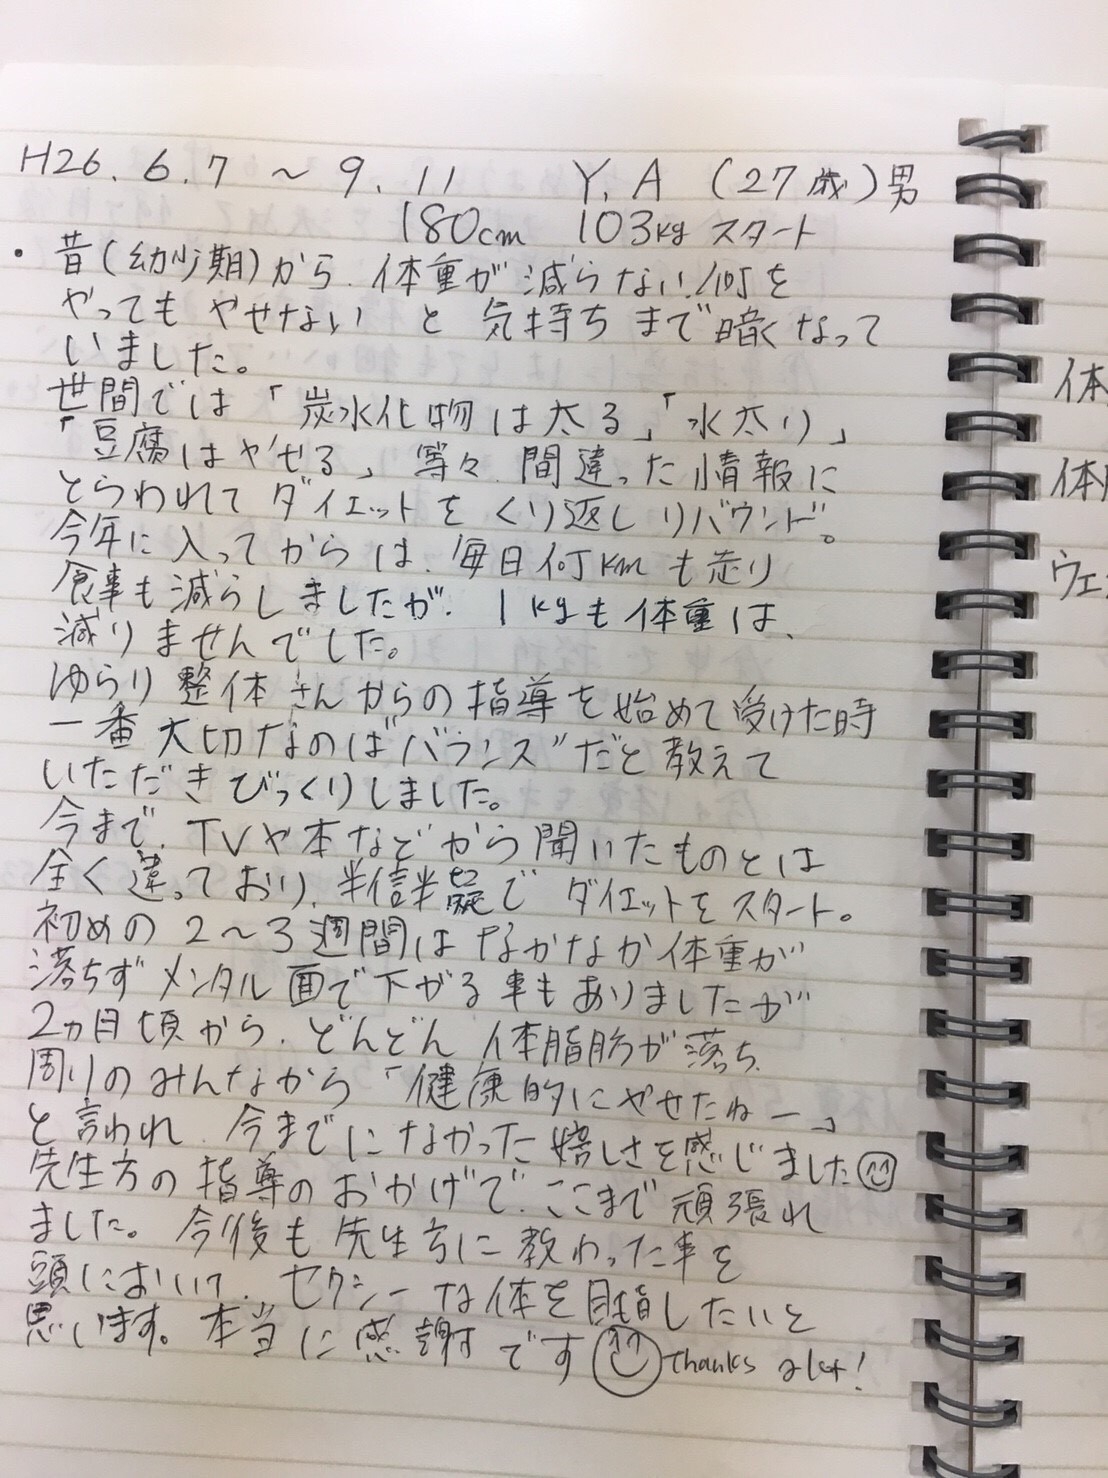 H26.6.7 ～ 9.11 Y.A (27歳)男
180cm 103kg スタート
・昔(幼少期)から、体重が減らない!何を
やってもやせない と 気持ちまで暗くなって
いました。
世間では「炭水化物は太る」「水太り」
「豆腐はやせる」等々、間違った情報に
とらわれてダイエットをくり返しリバウンド。
今年に入ってからは、毎日何kmも走り
食事も減らしましたが、1kgも体重は、
減りませんでした。
ゆらり整体さんからの指導を始めて受けた時
一番大切なのは"バランス"だと教えて
いただきびっくりしました。
今まで、TVや本などから聞いたものとは
全く違っており、半信半疑でダイエットをスタート。
初めの2～3週間はなかなか体重が
落ちずメンタル面で下がる事もありましたが
2ヵ月頃から、どんどん体脂肪が落ち、
周りのみんなから「健康的にやせたねー」
と言われ、今までになかった嬉しさを感じました
先生方の指導のおかげで、ここまで頑張れ
ました。今後も先生方に教わった事を
頭において、セクシーな体を目指したいと
思います。本当に感謝です Thanks alot!
体
体
ウエ